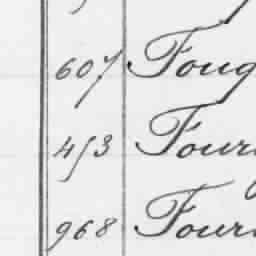 607 Foug
453 Four
968 Four